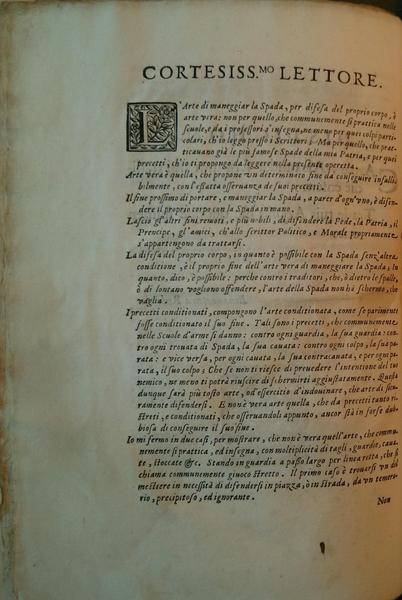 CORTESISS.MO LETTORE.
L'Arte di maneggiar la Spada, per difesa del proprio corpo, è
arte vera: non per quello, che communemente si prattica nelle
scuole, e da i professori s'insegna, ne meno per quei colpi parti-
colari, ch'io leggo presso i Scrittori; Ma per quello, che prat-
ticauano già le più famose Spade della mia Patria, e per quei
precetti, ch'io ti propongo da leggere nella presente operetta.
Arte vera è quella, che propone vn determinato fine da conseguire infalli-
bilmente, con l'esatta osseruanza de' suoi precetti.
Il fine prossimo di portare, e maneggiar la Spada, a parer d'ogn'vno, è difen-
dere il proprio corpo con la Spada in mano.
Lascio gl'altri fini remoti, e più nobili, di difendere la Fede, la Patria, il
Prencipe, gl'amici, ch'allo scrittor Politico, e Morale propriamente
s'appartengono da trattarsi.
La difesa del proprio corpo, in quanto è possibile con la Spada senz'altra
conditione, è il proprio fine dell'arte vera di maneggiare la Spada; In
quanto, dico, è possibile: perche contro i traditori, che, ò dietro le spalle,
ò di lontano vogliono offendere, l'arte della Spada non hà schermo, che
vaglia.
I precetti conditionati, compongono l'arte conditionata, come se parimente
fosse conditionato il suo fine. Tali sono i precetti, che communemente,
nelle Scuole d'arme si danno: contro ogni guardia, la sua guardia: con-
tro ogni trouata di Spada, la sua cauata: contro ogni colpo, la sua pa-
rata: e vice versa, per ogni cauata, la sua contracauata, e per ogni pa-
rata, il suo colpo; Che se non ti riesce di preuedere l'intentione del tuo
nemico, ne meno ti potrà riuscire di schermirti aggiustatamente. Questa
dunque sarà più tosto arte, od essercitio d'indouinare, che arte di sicu-
ramente difendersi. E non è vera arte quella, che da precetti tanto ri-
stretti, e conditionati, che osseruandoli appunto, ancor stà in forse dub-
biosa di conseguire il suo fine.
Io mi fermo in due casi, per mostrare, che non è vera quell'arte, che commu-
nemente si prattica, ed insegna, con moltiplicità di tagli, guardie, caua-
te, stoccate &c. Stando in guardia a passo largo per linea retta, che si
chiama communemente giuoco stretto. Il primo caso è trouarsi vn del
mestiere in necessità di difendersi in piazza, ò in strada, da vn temera-
rio, precipitoso, ed ignorante.
Non